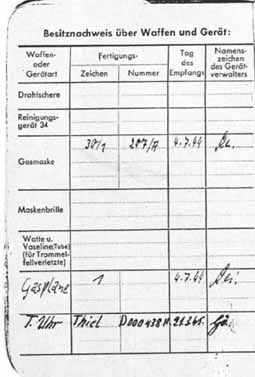 Besitznachweis über Waffen und Gerät:
Waffen- oder Gerätart
Fertigungs-
Zeichen
Nummer
Tag des Empfangs
Namens-zeichen des Gerät-verwalters
Drahtschere
Reinigungs-gerät 34
Gasmaske 30/1 207/A 4.7.44
Maskenbrille
Watte u. Vaseline (Tube) (für Trommel-fellverletzte)
Gasplane 1 4.7.44
T. Uhr Thiel D000438H 21.3.45.